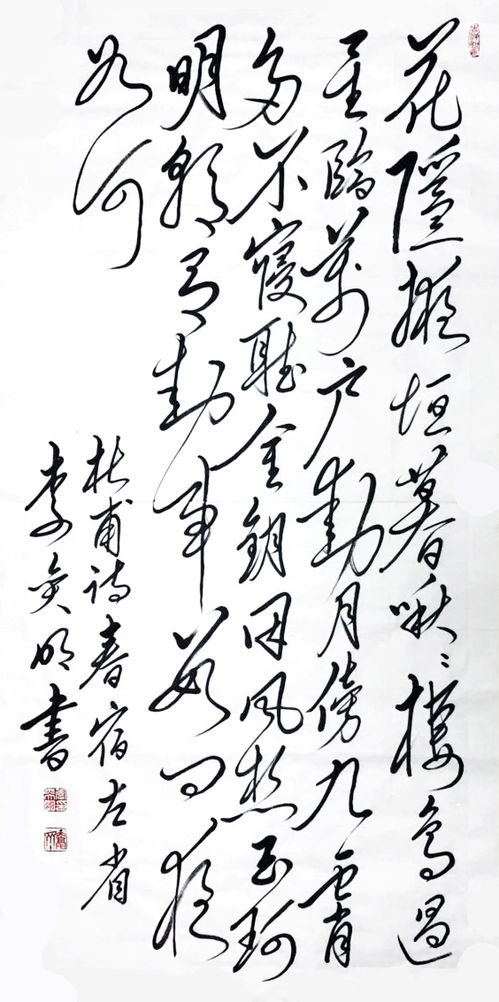 花隱掖垣暮啾〻棲鳥過
星臨萬户動月傍九霄
多不寢聽金鑰因風想玉珂
明朝有封事數問夜
如何
杜甫詩春宿左省
李明書